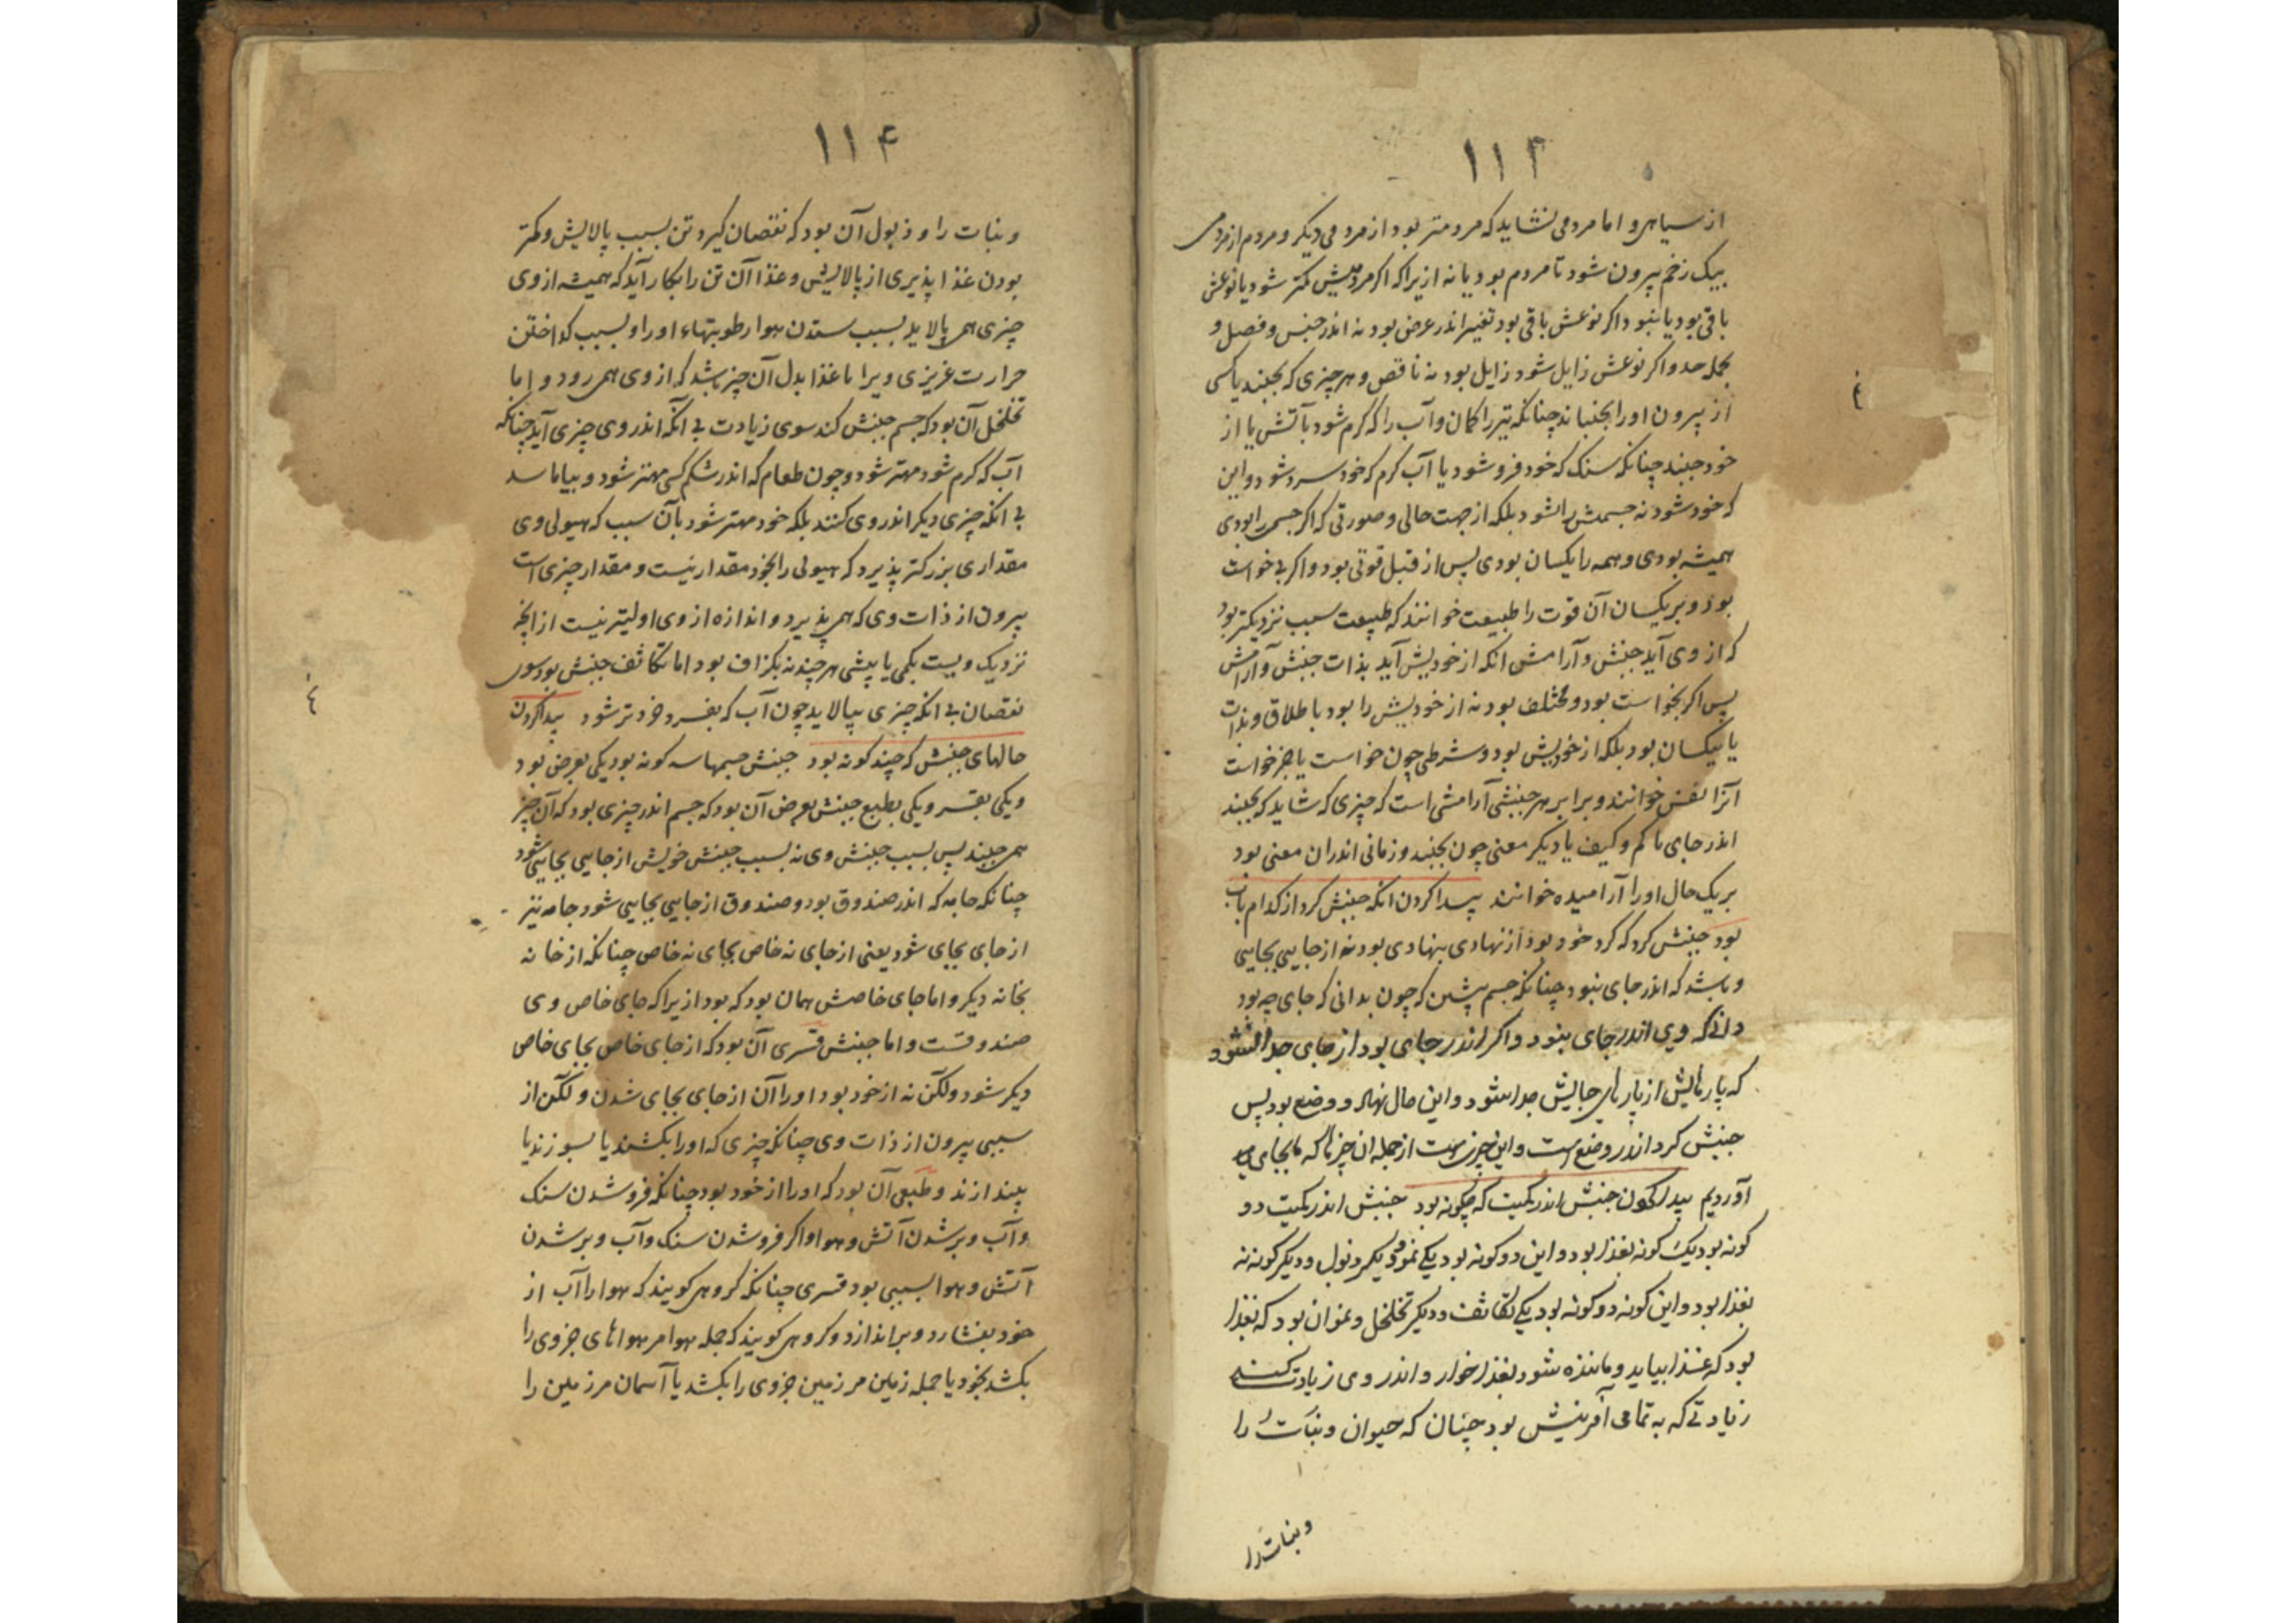 ۱۱۳
از سیاهی و اما مردمی نشاید که مردمتر بود از مردمی دیگر و مردم از مردمی
بیک زخم بیرون شود تا مردم بود یا نه ازیرا که اکر مردمیش کمتر شود یا نوعش
باقی بود یا نبود اکر نوعش باقی بود تغیر اندر عرض بود نه اندر جنس و فصل و
بجمله حد و اکر نوعش زایل شود زایل بود نه ناقص و هر چیزی که بجنبد یا کسی
از بیرون اورا بجنباند چنانکه تیر را کمان و آب را که کرم شود بآتش یا از
خود جنبد چنانکه سنک که خود فرو شود یا آب کرم که خود سرد شود و این
که خود شود نه جسمش را شود بلکه از جهت حالی و صورتی که اکر جسم را بودی
همیشه بودی و همه را یکسان بودی پس از قبل قوتی بود و اکر بی خواست
بود و بریکسان آن قوت را طبیعت خوانند که طبیعت سبب نزدیکتر بود
که از وی آید جنبش و آرامش انکه از خودیش آید بذات جنبش و آرامش
پس اکر بخواست بود و مختلف بود نه از خودیش را بود باطلاق و بذات
یا بیکسان بود بلکه از خودیش بود و شرطی چون خواست یا جز خواست
آنرا نفس خوانند و برابر هر جنبشی آرامشی است که چیزی که شاید که بجنبد
اندر جای یا کم و کیف یا دیکر معنی چون نجنبد و زمانی اندران معنی بود
بریک حال اورا آرامیده خوانند پیدا کردن انکه جنبش کرد از کدام باب
بود جنبش کرد که کرد خود بود از نهادی بنهادی بود نه از جایی بجایی
و باشد که اندر جای نبود چنانکه جسم پیشین که چون بدانی که جای چه بود
دانی که وی اندر جای نبود و اکر اندر جای بود از جای جدا نشود
که پارهایش از پارهای جایش جدا شود و این حال نهاد و وضع بود پس
جنبش کرد اندر وضع است و این چیزی است از جمله ان چیزها که ما بجای
آوردیم پیدا کردن جنبش اندر کمیت که چکونه بود جنبش اندر کمیت دو
کونه بود یک کونه بغذا بود و این دو کونه بود یکی نمو و یکی ذبول و دیکر کونه نه
بغذا بود و این کونه دو کونه بود یکی تکاثف و دیکر تخلخل و نمو آن بود که بغذا
بود که غذا بیاید و ماننده شود بغذا خوار و اندر وی زیادت کند
زیادتی که به تمامی آفرینش بود چنان که حیوان و نبات را
و نبات را
۱۱۴
و نبات را و ذبول آن بود که نقصان کیرد تن بسبب پالایش و کمتر
بودن غذا پذیری از پالایش و غذا آن تن را بکار آید که همیشه از وی
چیزی همی پالاید بسبب ستدن هوا رطوبتهاء اورا و بسبب کداختن
حرارت غریزی ویرا تا غذا بدل آن چیز باشد که از وی همی رود و اما
تخلخل آن بود که جسم جنبش کند سوی زیادت بی آنکه اندر وی چیزی آید چنانکه
آب که کرم شود مهتر شود و چون طعام که اندر شکم کسی مهتر شود و بیاماسد
بی انکه چیزی دیکر اندر وی کنند بلکه خود مهتر شود بآن سبب که هیولی وی
مقداری بزرکتر پذیرد که هیولی را بخود مقدار نیست و مقدار چیزی است
بیرون از ذات وی که همی پذیرد و اندازه از وی اولیتر نیست از انچه
نزدیک ویست بکمی یا بیشی هر چند نه بکزاف بود اما تکاثف جنبش بود سوی
نقصان بی انکه چیزی بپالاید چون آب که بفسرد خردتر شود پیدا کردن
حالهای جنبش که چند کونه بود جنبش جسمها سه کونه بود یکی بعرض بود
و یکی بقسر و یکی بطبع جنبش بعرض آن بود که جسم اندر چیزی بود که آن چیز
همی جنبد پس بسبب جنبش وی نه بسبب جنبش خویش از جایی بجایی شود
چنانکه جامه که اندر صندوق بود و صندوق از جایی بجایی شود جامه نیز
از جای بجای شود یعنی از جای نه خاص بجای نه خاص چنانکه از خانه
بخانه دیکر و اما جای خاصش همان بود که بود ازیرا که جای خاص وی
صندوقست و اما جنبش قسری آن بود که از جای خاص بجای خاص
دیکر شود ولکن نه از خود بود اورا آن از جای بجای شدن ولکن از
سببی بیرون از ذات وی چنانکه چیزی که اورا بکشند یا بسوزند یا
بیندازند و طبعی آن بود که اورا از خود بود چنانکه فرو شدن سنک
و آب و بر شدن آتش و هوا و اکر فرو شدن سنک و آب و بر شدن
آتش و هوا بسببی بود قسری چنانکه کروهی کویند که هوا را آب از
خود بفشارد و براندازد و کروهی کویند که جمله هوا مر هواهای جزوی را
بکشد بخود یا جمله زمین مر زمین جزوی را بکشد یا آسمان مر زمین را